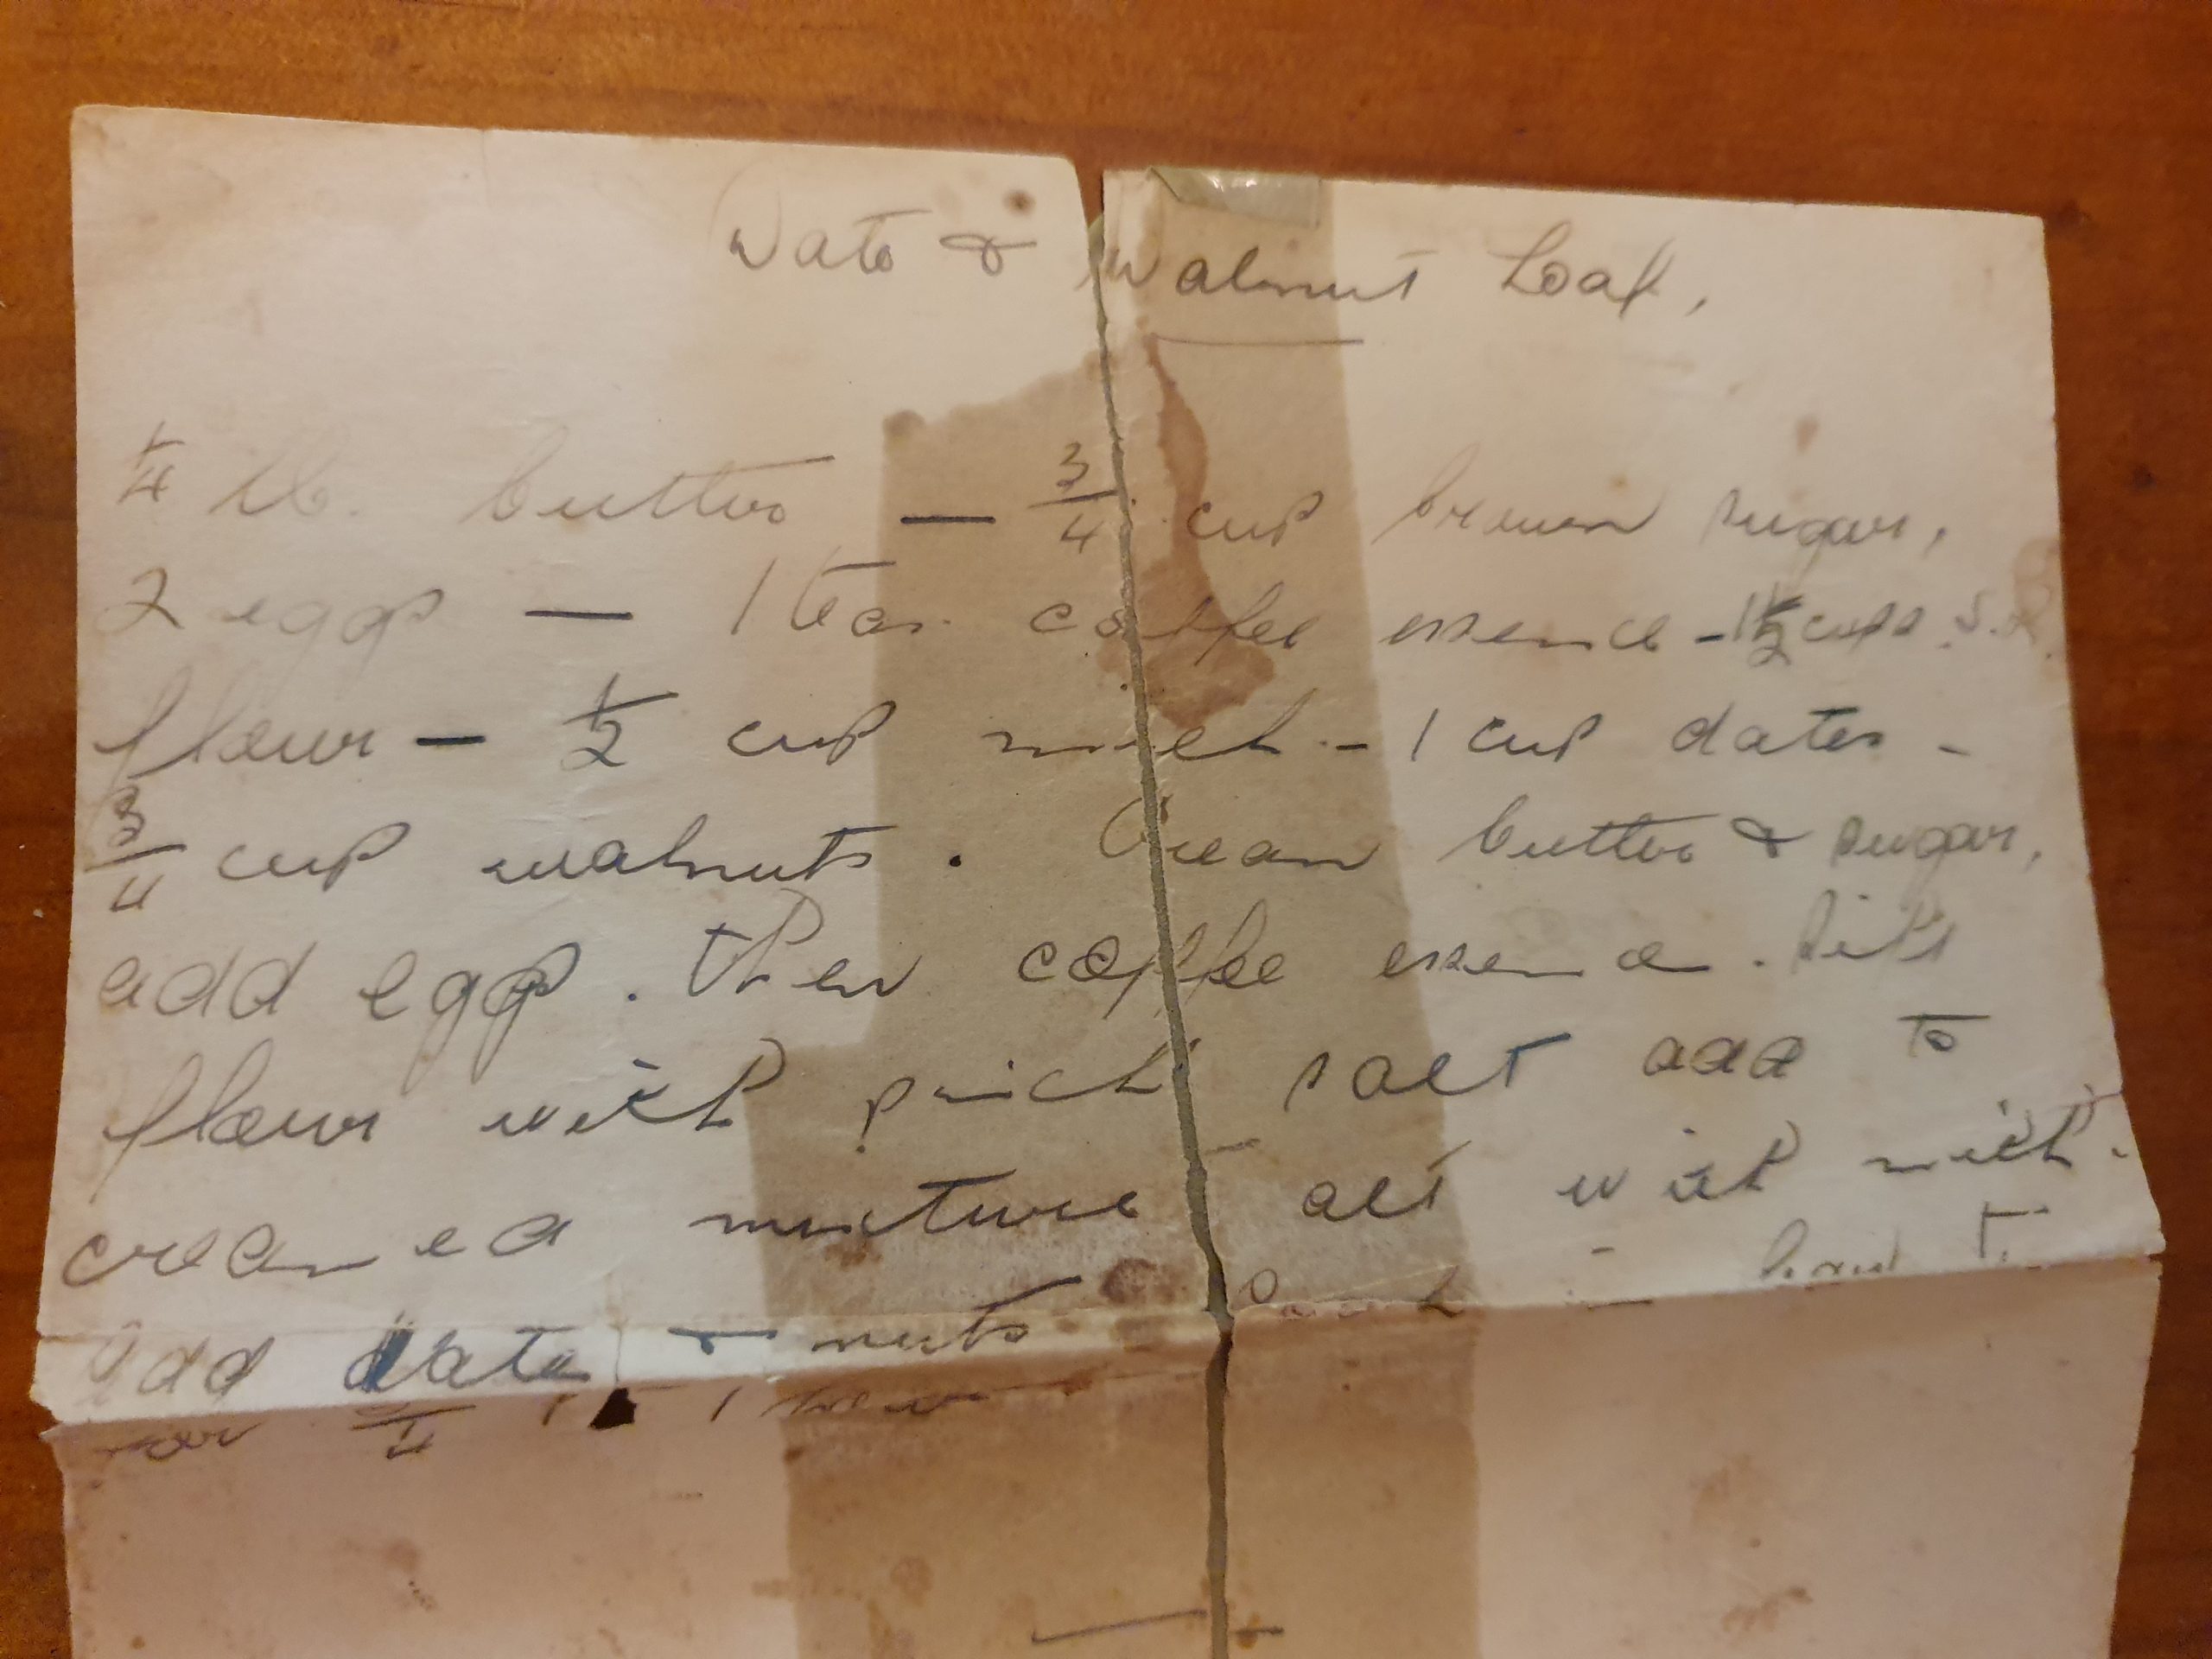 Date & Walnut Loaf,
1/4 lb. butter — 3/4 cup brown sugar,
2 eggs — 1 tea. coffee essence - 1 1/2 cups S.R.
flour — 1/2 cup milk - 1 cup dates -
3/4 cup walnuts. Cream butter & sugar,
add eggs. then coffee essence. Sift
flour with pinch salt add to
creamed mixture alt with milk.
add dates & nuts
3/4 1 hour